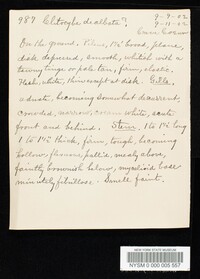 987 Clitocybe dealbata?
9-9-02
9-11-02
On the ground. Pileus, 1½ broad, plane,
disk depressed, smooth, whitish with a
tawny tinge or pale tan, firm, elastic.
Flesh white, thin except at disk. Gills
adnate, becoming somewhat decurrent,
crowded, narrow, white, acute
front and behind. Stem, 1 to 1½ long
1 to 1½ thick, firm, tough, becoming
hollow, pallid, mealy above,
faintly brownish below, mycelioid base
minutely fibrillose. Smell faint.
NEW YORK STATE MUSEUM
NYSM 0 000 005 557